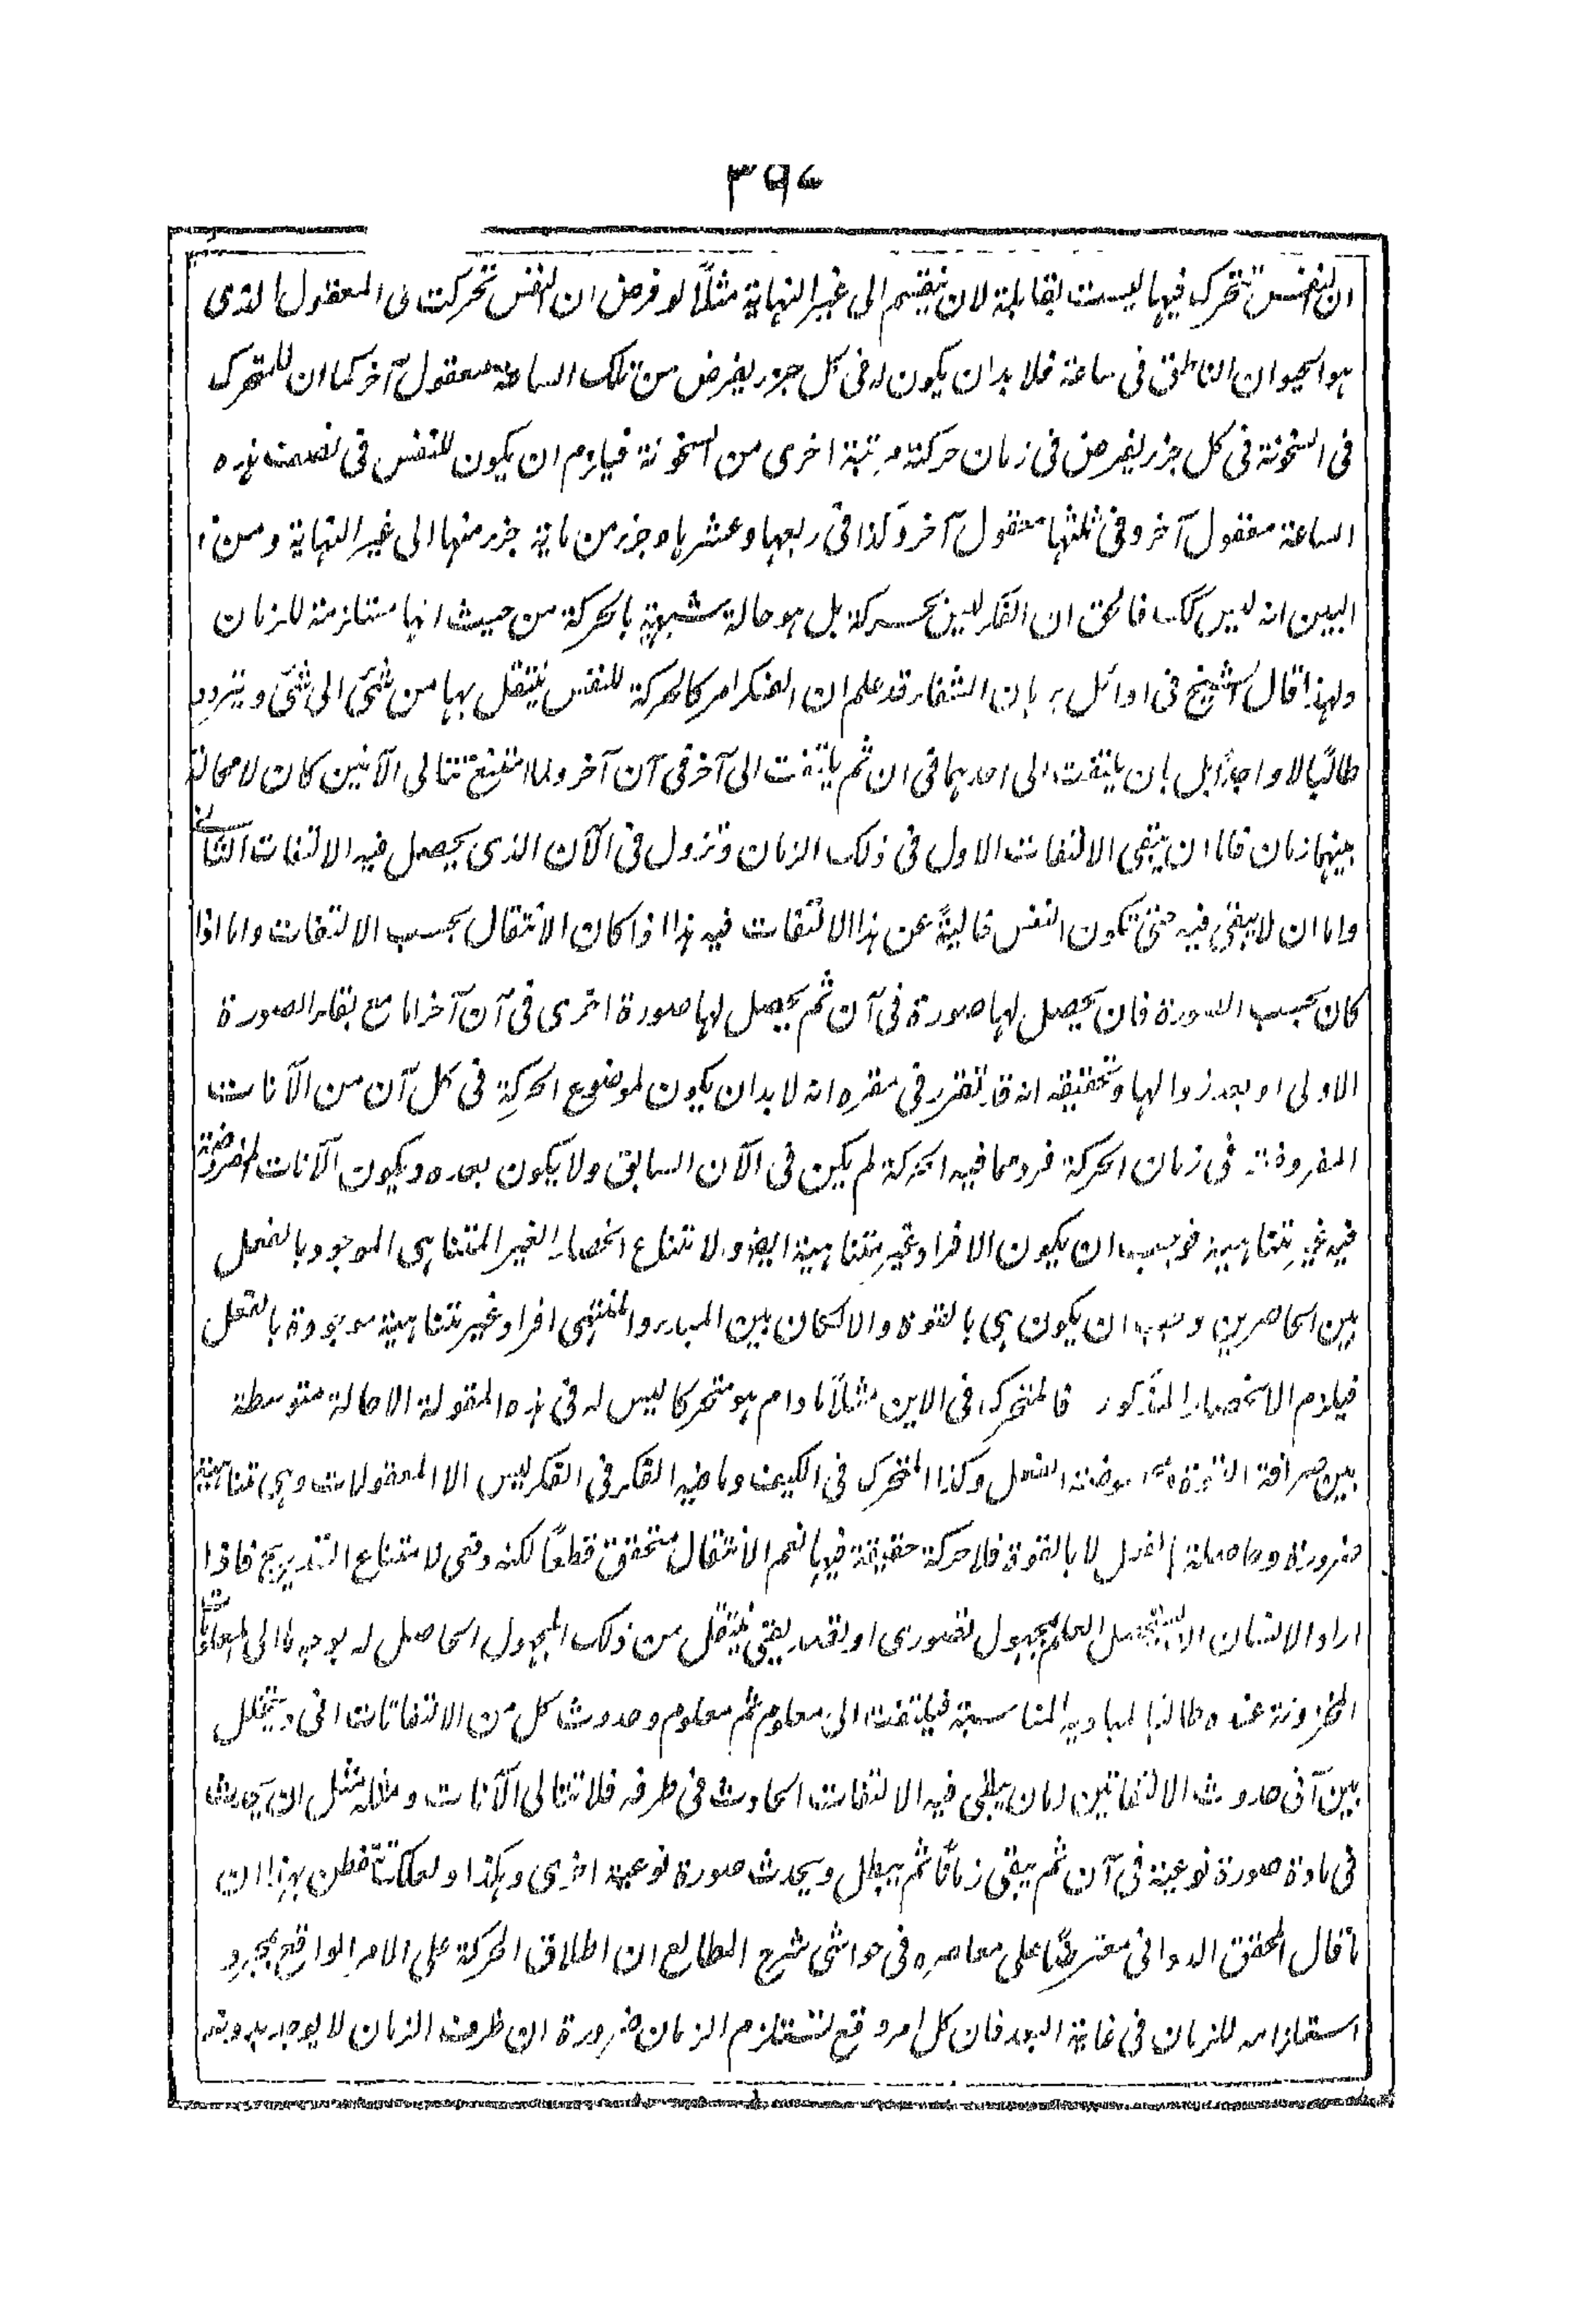 ٣٩٤
ان النفس تتحرك فيها ليست بقابلة لان ينقسم الى غير النهاية مثلًا لو فرض ان النفس تحركت فى المعقول الذى
هو الحيوان الناطق فى ساعة فلا بد ان يكون له فى كل جزء يفرض من تلك الساعة معقول آخر كما ان للمتحرك
فى السخونة فى كل جزء يفرض فى زمان حركته مرتبة اخرى من السخونة فيلزم ان يكون للنفس فى نصف هذه
الساعة معقول آخر وفى ثلثها معقول آخر وكذا فى ربعها وعشرها وجزء من ماية جزء منها الى غير النهاية ومن
البين انه ليس كك فالحق ان الفكر ليس بحركة بل هو حالة شبيهة بالحركة من حيث انها مستلزمة للزمان
ولهذا قال الشيخ فى اوائل برهان الشفاء قد علم ان الفكر امر كالحركة للنفس ينتقل بها من شئ الى شئ ويتردد
طالبًا لا واجدًا بل بان يلتفت الى احدهما فى ان ثم يلتفت الى آخر فى آن آخر ولما امتنع تتالى الآنين كان لا محالة
بينهما زمان فاما ان يبقى الالتفات الاول فى ذلك الزمان وتزول فى الآن الذى يحصل فيه الالتفات الثانى
واما ان لا يبقى فيه حتى تكون النفس خالية عن هذا الالتفات فيه هذا اذا كان الانتقال بحسب الالتفات واما اذا
كان بحسب الصورة فان يحصل لها صورة فى آن ثم يحصل لها صورة اخرى فى آن آخر اما مع بقاء الصورة
الاولى او بعد زوالها وتحقيقه انه قد تقرر فى مقره انه لا بد ان يكون لموضوع الحركة فى كل آن من الآنات
المفروضة فى زمان الحركة فرد مما فيه الحركة لم يكن فى الآن السابق ولا يكون بعده ويكون الآنات المفروضة
فيه غير متناهية فوجب ان يكون الافراد غير متناهية ايضا ولا متناع انحصار الغير المتناهى الموجود بالفعل
بين الحاصرين وجب ان يكون هى بالقوة والا لكان بين المبدء والمنتهى افراد غير متناهية موجودة بالفعل
فيلزم الانحصار المذكور فالمتحرك فى الاين مثلًا ما دام هو متحركا ليس له فى هذه المقولة الا حالة متوسطة
بين صرافة القوة ومحوضة الفعل وكذا المتحرك فى الكيف وما فيه الفكر فى الفكر ليس الا المعقولات وهى متناهية
ضرورة وحاصلة بالفعل لا بالقوة فلا حركة حقيقة فيها نعم الانتقال متحقق قطعًا لكنه دفعى لامتناع التدريج فاذا
اراد الانسان ان يتحصل العلم بمجهول تصورى او تصديقى ينتقل من ذلك المجهول الحاصل له بوجه ما الى المعلومات
المخزونة عنده طالبًا لمباديه المناسبة فيلتفت الى معلوم ثم معلوم وحدوث كل من الالتفاتات انى ويتخلل
بين آنى حدوث الالتفاتين زمان يبقى فيه الالتفات الحادث فى طرفه فلا تتالى الآنات ومثله مثل ان يحدث
فى مادة صورة نوعية فى آن ثم يبقى زمانًا ثم يبطل ويحدث صورة نوعية اخرى وهكذا ولعلك تتفطن بهذا ان
ما قال المحقق الدوانى معترضًا على معاصره فى حواشى شرح المطالع ان اطلاق الحركة على الامر الواقع بمجرد
استلزامه للزمان فى غاية البعد فان كل امر وقع تستلزم الزمان ضرورة ان طرف الزمان لا يوجد بدونه